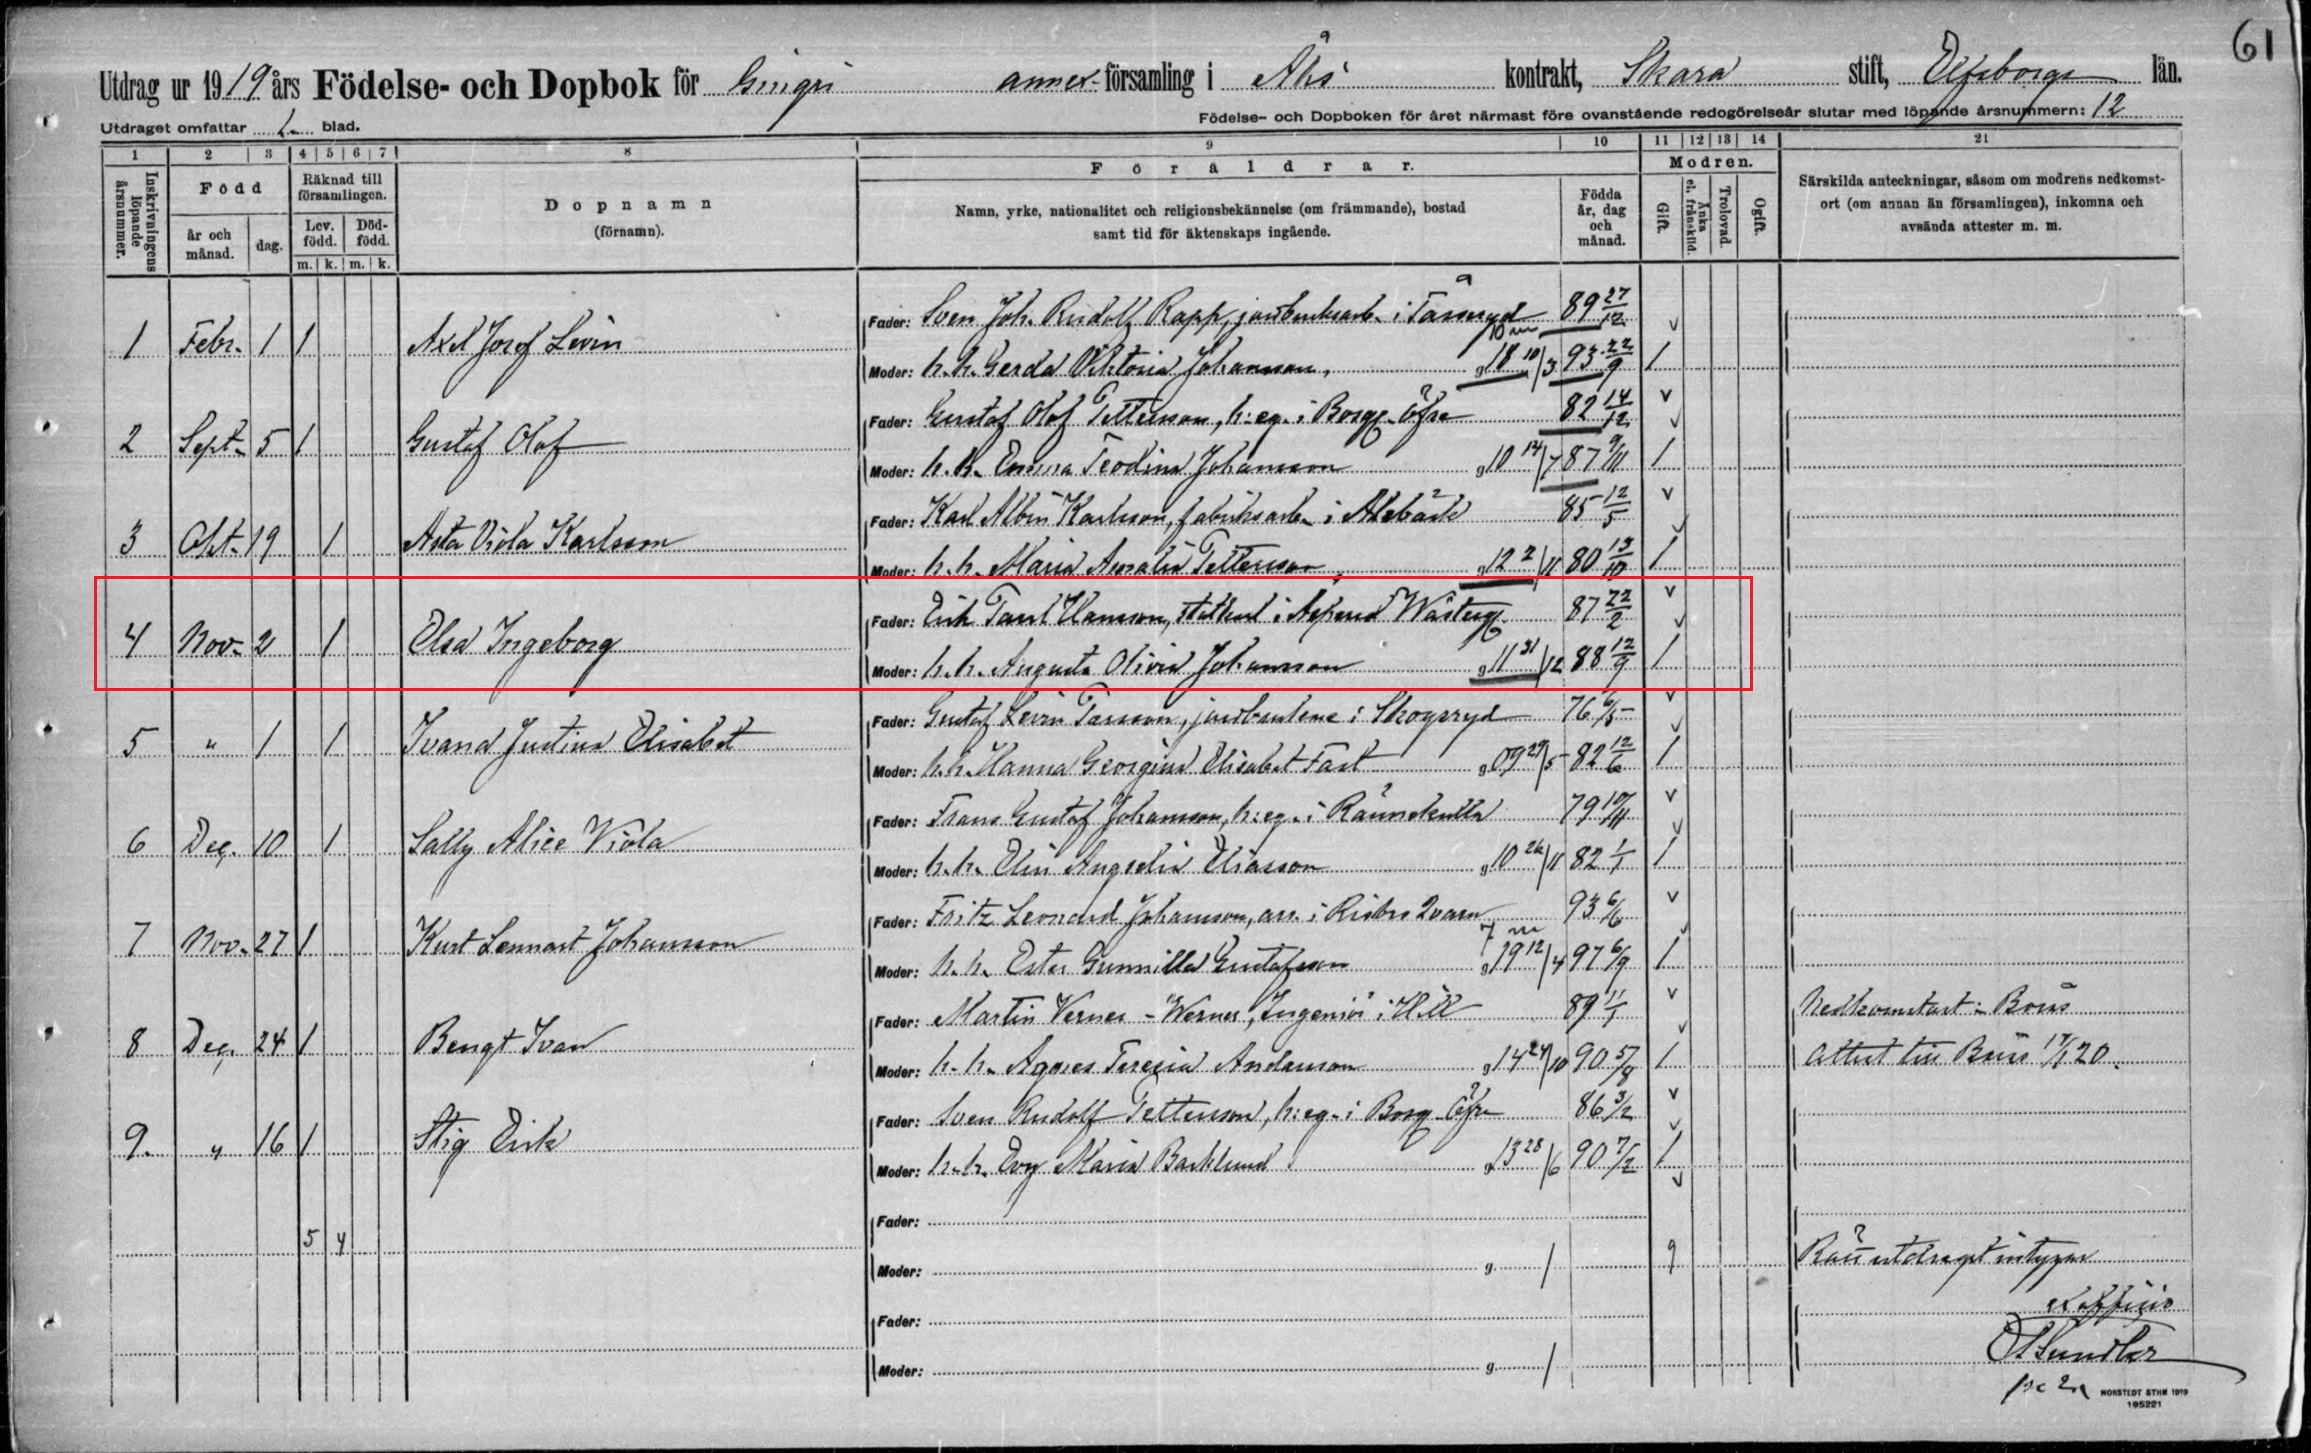 61
Utdrag ur 1919 års Födelse- och Dopbok för Gingri annex- församling i Ås kontrakt, Skara stift, Elfsborgs län.
Utdraget omfattar 1 blad. Födelse- och Dopboken för året närmast före ovanstående redogörelseår slutar med löpande årsnummern: 12
1 2 3 4 5 6 7 8 9 10 11 12 13 14 21
Inskrivningens löpande årsnummer.
Född
år och månad.
dag.
Räknad till församlingen.
Lev. född.
Död- född.
m. k. m. k.
Dopnamn
(förnamn).
Föräldrar.
Namn, yrke, nationalitet och religionsbekännelse (om främmande), bostad
samt tid för äktenskaps ingående.
Födda år, dag och månad.
Modren.
Gift.
Änka el. frånskild.
Trolovad.
Ogift.
Särskilda anteckningar, såsom om modrens nedkomst-
ort (om annan än församlingen), inkomna och
avsända attester m. m.
Fader: Sven Joh. Rudolf Rapp, jordbruksarb. i Tåssryd 89 27/12
10 m
1 Febr. 1 1 Axel Josef Levin
Moder: h. h. Gerda Viktoria Johansson, g 18 10/3 93 22/9 1
Fader: Gustaf Olof Pettersson, h:eg. i Borg. Öfre 82 14/12
2 Sept. 5 1 Gustaf Olof
Moder: h. h. Emma Teodina Johansson g 10 14/7 87 9/11 1
Fader: Karl Albin Karlsson, fabriksarb. i Alebäck 85 12/5
3 Okt. 19 1 Asta Viola Karlsson
Moder: h. h. Maria Amalia Pettersson g 12 2/11 80 13/10 1
Fader: Erik Paul Hansson, statkarl i Aspered Västerg. 87 22/2
4 Nov. 2 1 Elsa Ingeborg
Moder: h. h. Augusta Olivia Johansson g 11 31/12 88 12/9 1
Fader: Gustaf Levin Larsson, jordbrukare i Skogsryd 76 6/5
5 " 1 1 Ivana Justina Elisabet
Moder: h. h. Hanna Georgina Elisabet Fast g 09 29/5 82 12/6 1
Fader: Frans Gustaf Johansson, h:eg. i Rånnekulla 79 10/11
6 Dec. 10 1 Sally Alice Viola
Moder: h. h. Elin Angelia Eliasson g 10 26/11 82 1/1 1
Fader: Fritz Leonard Johansson, arr. i Risbro Qvarn 93 6/6
7 m
7 Nov. 27 1 Kurt Lennart Johansson
Moder: h. h. Ester Gunnilla Gustafsson g 19 12/4 97 6/9 1
Fader: Martin Verner - Werner, Ingeniör i Hill 89 11/1 Nedkomstort: Borås
8 Dec. 24 1 Bengt Ivan
Moder: h. h. Agnes Teresia Andersson g 14 24/10 90 5/8 1 Attest till Borås 17/1 20.
Fader: Sven Rudolf Pettersson, h:eg. i Borg Öfre 86 3/2
9. " 16 1 Stig Erik
Moder: h. h. Evy Maria Backlund g 13 28/6 90 7/2 1
Fader:
5 4
Moder: g / 9 Rätt utdraget intygar
Fader: ex officio
Moder: g /
NORSTEDT STHM 1919
195221